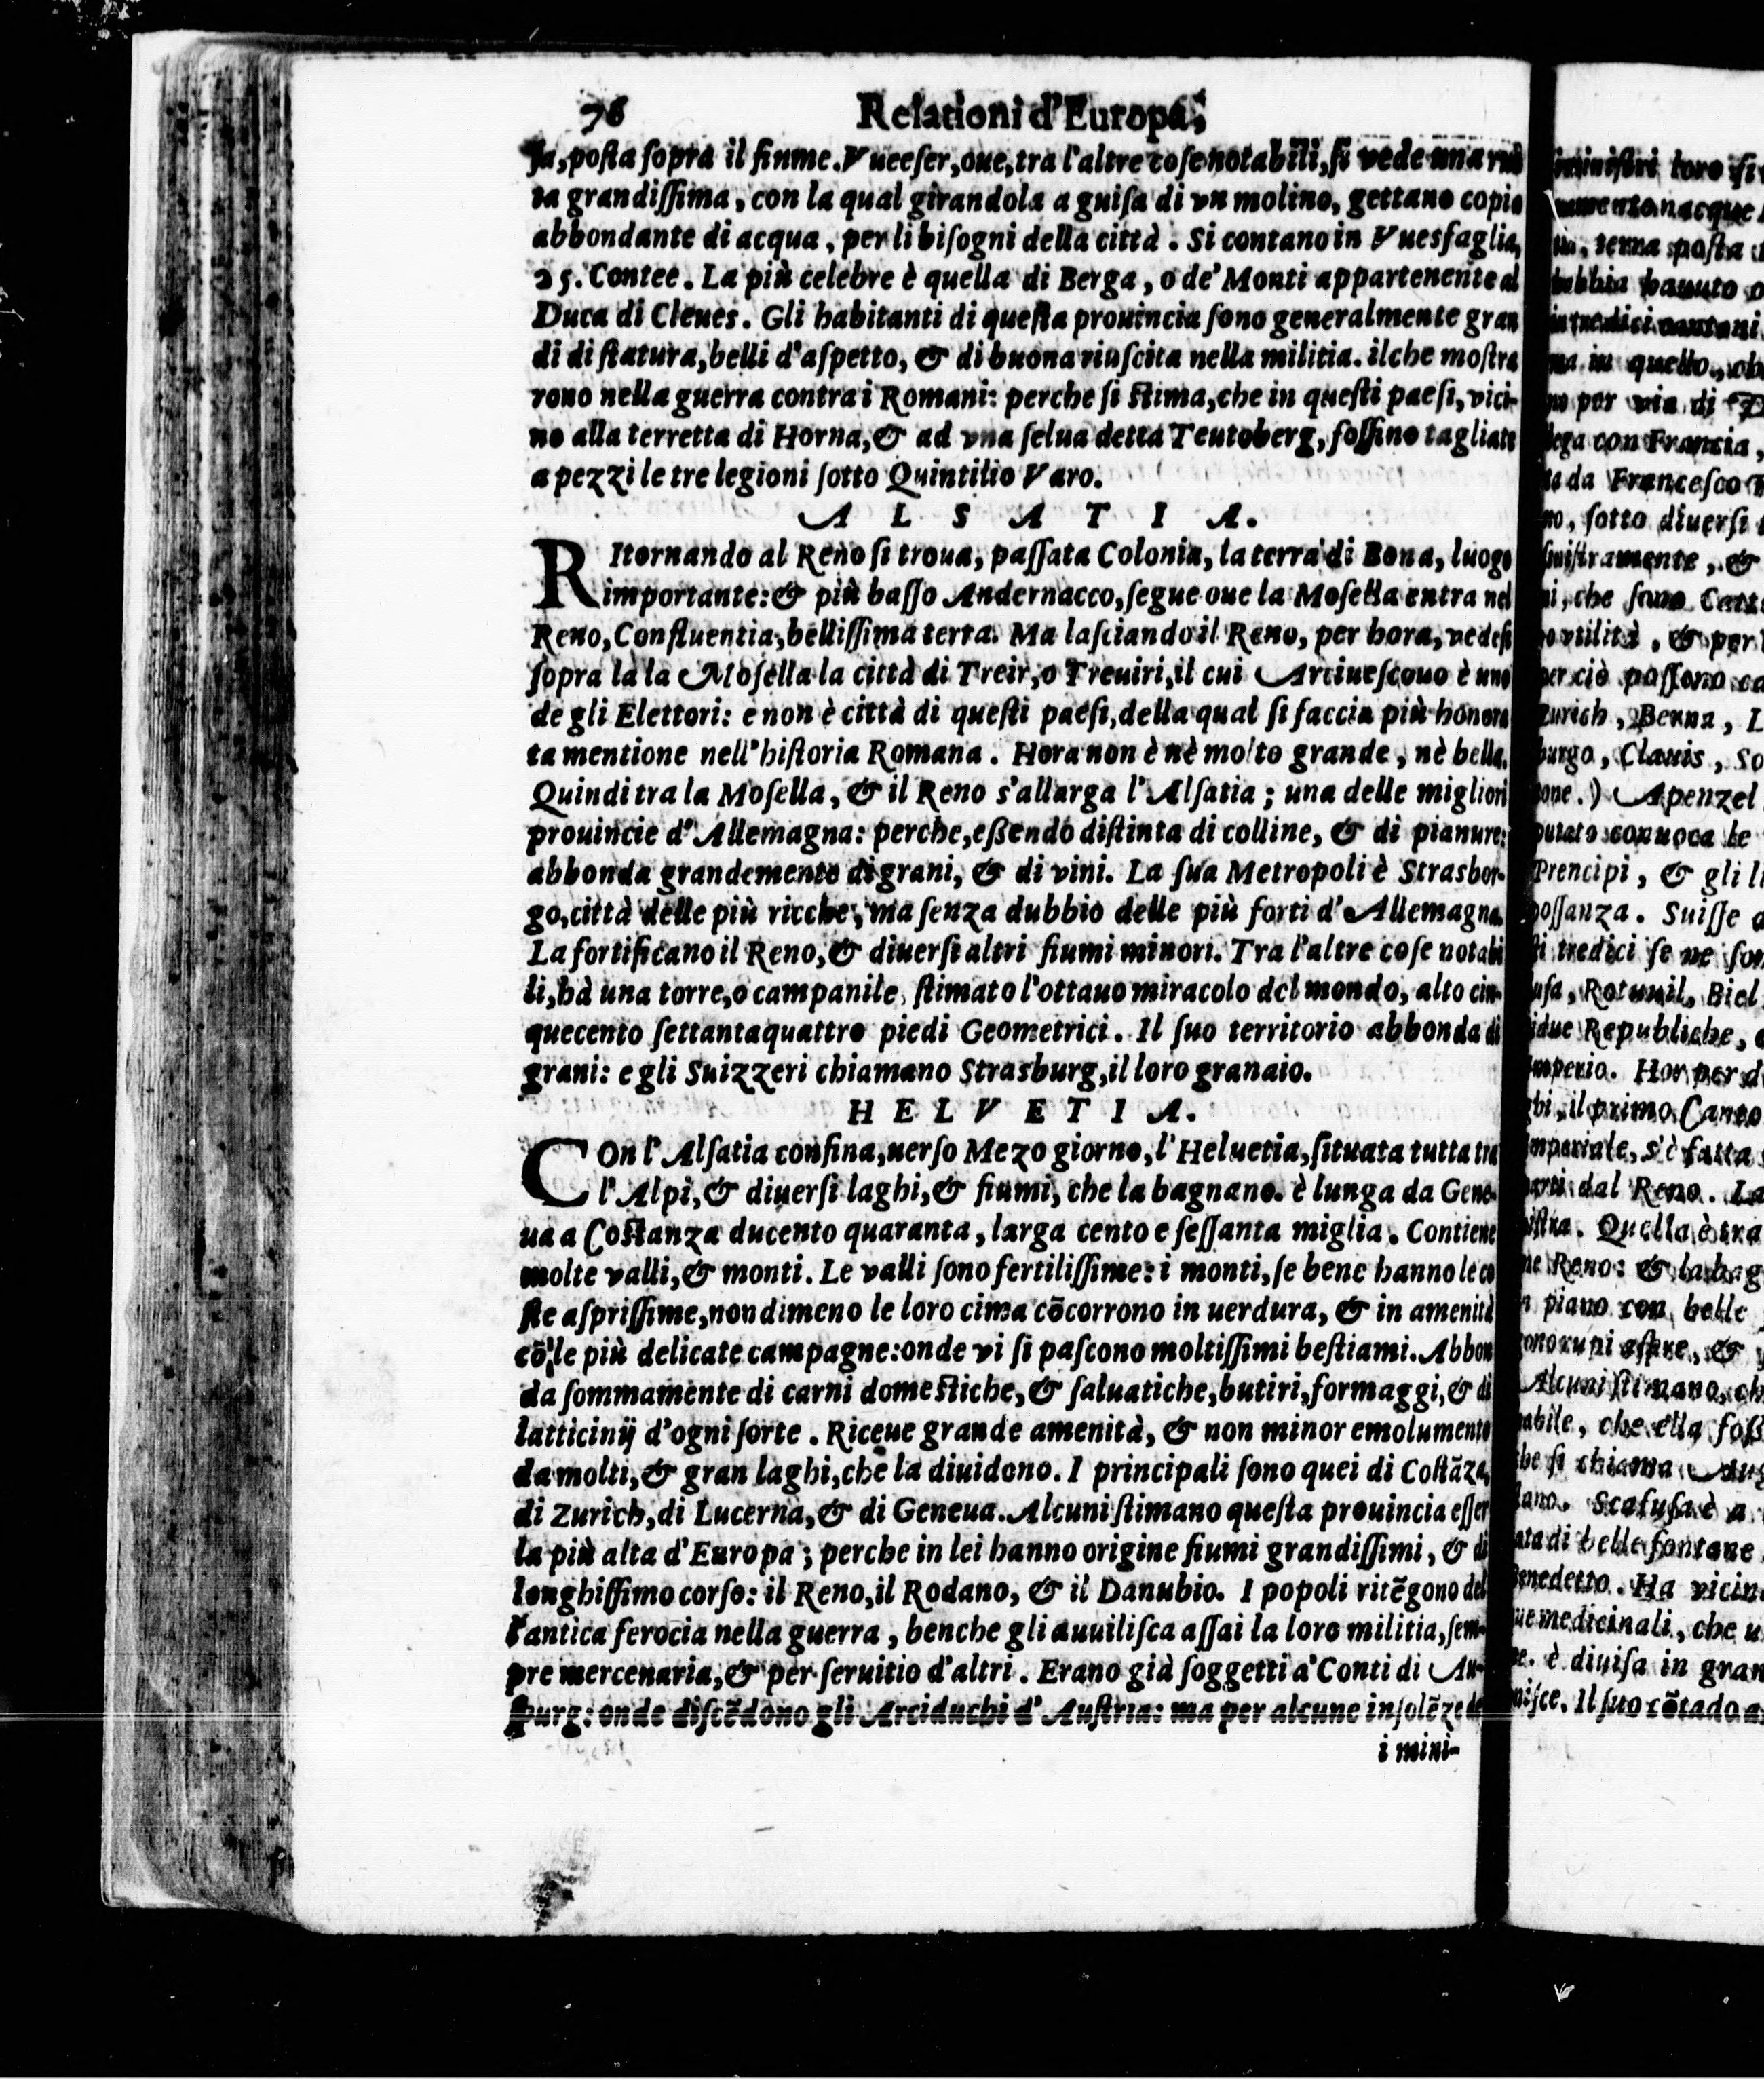 76 Relationi d'Europa,
ſa, poſta ſopra il fiume. Vueeſer, oue, tra l'altre coſe notabili, ſi vede una ruo
ta grandiſſima, con la qual girandola a guiſa di vn molino, gettano copia
abbondante di acqua, per li biſogni della città. Si contano in Vuesfaglia,
25. Contee. La più celebre è quella di Berga, o de' Monti appartenente al
Duca di Cleues. Gli habitanti di queſta prouincia ſono generalmente gran
di di ſtatura, belli d'aſpetto, & di buona riuſcita nella militia. ilche moſtra
rono nella guerra contra i Romani: perche ſi ſtima, che in queſti paeſi, vici-
no alla terretta di Horna, & ad vna ſelua detta Teutoberg, foſſino tagliate
a pezzi le tre legioni ſotto Quintilio Varo.
ALSATIA.
RItornando al Reno ſi troua, paſſata Colonia, la terra di Bona, luogo
importante: & più baſſo Andernacco, ſegue oue la Moſella entra nel
Reno, Confluentia, belliſſima terra. Ma laſciando il Reno, per hora, vedeſi
ſopra la la Moſella la città di Treir, o Treuiri, il cui Arciueſcouo è uno
de gli Elettori: e non è città di queſti paeſi, della qual ſi faccia più honora
ta mentione nell'hiſtoria Romana. Hora non è nè molto grande, nè bella.
Quindi tra la Moſella, & il Reno s'allarga l'Alſatia; una delle migliori
prouincie d'Allemagna: perche, eßendo diſtinta di colline, & di pianure:
abbonda grandemente di grani, & di vini. La ſua Metropoli è Strasbor-
go, città delle più ricche, ma ſenza dubbio delle più forti d'Allemagna.
La fortificano il Reno, & diuerſi altri fiumi minori. Tra l'altre coſe notabi
li, hà una torre, o campanile, ſtimato l'ottauo miracolo del mondo, alto cin-
quecento ſettantaquattro piedi Geometrici. Il ſuo territorio abbonda di
grani: e gli Suizzeri chiamano Strasburg, il loro granaio.
HELVETIA.
COn l'Alſatia confina, uerſo Mezo giorno, l'Heluetia, ſituata tutta tra
l'Alpi, & diuerſi laghi, & fiumi, che la bagnano. è lunga da Gene-
ua a Coſtanza ducento quaranta, larga cento e ſeſſanta miglia. Contiene
molte valli, & monti. Le valli ſono fertiliſſime: i monti, ſe bene hanno le co
ſte aſpriſſime, nondimeno le loro cima cõcorrono in uerdura, & in amenità
cõ le più delicate campagne: onde vi ſi paſcono moltiſſimi beſtiami. Abbon
da ſommamente di carni domeſtiche, & ſaluatiche, butiri, formaggi, & di
latticinij d'ogni ſorte. Riceue grande amenità, & non minor emolumento
da molti, & gran laghi, che la diuidono. I principali ſono quei di Coſtãza,
di Zurich, di Lucerna, & di Geneua. Alcuni ſtimano queſta prouincia eſſer
la più alta d'Europa; perche in lei hanno origine fiumi grandiſſimi, & di
longhiſſimo corſo: il Reno, il Rodano, & il Danubio. I popoli ritẽgono del
l'antica ferocia nella guerra, benche gli auuiliſca aſſai la loro militia, ſem-
pre mercenaria, & per ſeruitio d'altri. Erano già ſoggetti a' Conti di Au-
ſpurg: onde diſcẽdono gli Arciduchi d'Auſtria: ma per alcune inſolẽze de
i mini-
miniſtri loro ſi
tia, terra poſta
habbia hauuto
in tredici cantoni
ma in quello,
no per via di
lega con Francia,
da Franceſco
no, ſotto diuerſi
ſiniſtramente, &
ni, che ſono
utilità, & per
per ciò paſſono
Zurich, Berna, L
burgo, Clauis, So
one.) Apenzel
putato conuoca le
Prencipi, & gli li
poſſanza. Suiſſe
ſti tredici ſe ne ſon
uſa, Rotuuil, Biel
due Republiche,
mperio. Hor per
il primo
mperiale, s'è fatta
parti dal Reno. La
niſtra. Quella è tra
ne Reno: &
piano con belle
ono rupi aſpre, &
Alcuni ſtimano, ch
abile, che ella foſſ
che ſi chiama Aug
Scafuſa è a
ata di belle fontane
Benedetto. Ha vicin
ue medicinali, che u
è diuiſa in gran
niſce. Il ſuo cõtado